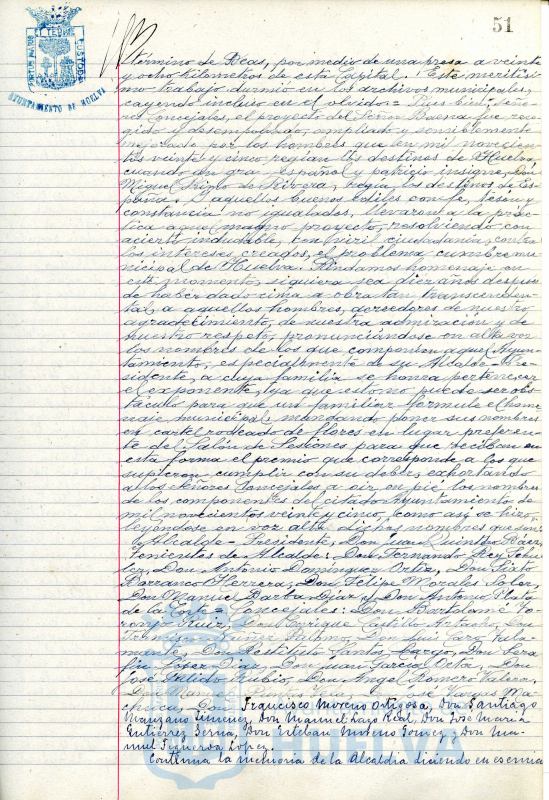 51
AYUNTAMIENTO DE HUELVA
término de Beas, por medio de una presa a veinte
y ocho kilometros de esta Capital. Este meritísi-
mo trabajo durmió en los archivos municipales,
cayendo incluso en el olvido.= Pues bien, seño-
res Concejales, el proyecto del Señor Baena fue reco-
gido y desempolvado, ampliado y sensiblemente
mejorado por los hombres que en mil novecien-
tos veinte y cinco regian los destinos de Huelva,
cuando un gran Español y patricio insigne, Don
Miguel Primo de Rivera, regia los destinos de Es-
paña. Y aquellos buenos ediles con fe, teson y
constancia no igualados, llevaron a la prác-
tica aquel magno proyecto, resolviendo con
acierto indudable, con viril ciudadania, contra
los intereses creados, el problema cumbre mu-
nicipal de Huelva. Rindamos homenaje en
este momento, siquiera sea diez años después
de haber dado cima a obra tan transcenden-
tal a aquellos hombres, acreedores de nuestro
agradecimiento, de nuestra admiración y de
nuestro respeto, pronunciándose en alta voz
los nombres de los que componian aquel Ayun-
tamiento, especialmente de su Alcalde-Pre-
sidente, a cuya familia se honra pertenecer
el exponente, y ya que esto no puede ser obs-
táculo para que un familiar formule el home-
naje municipal mandando poner sus nombres
en cartel rodeado de flores en lugar preferen-
te del Salón de Sesiones para que reciban en
esta forma el premio que corresponde a los que
supieron cumplir con su deber, exhortando
a los señores Concejales a oir en pié los nombres
de los componentes del citado Ayuntamiento de
mil novecientos veinte y cinco, como asi se hizo
leyéndose en voz alta dichos nombres que son:
Alcalde-Presidente, Don Juan Quintero Báez,
Tenientes de Alcalde: Don Fernando Rey
Don Antonio Dominguez Ortiz, Don Sixto
Barranco Herrera, Don Felipe Morales Soler,
Don Manuel Barba Diaz y Don Antonio Plata
de la Corte= Concejales: Don Bartolomé
Ruiz, Don Enrique Castillo Don
Don Luis Caro
Don Restituto Santos Don Sera-
fin Lopez Diaz, Don Juan Garcia Don
José Pulido Rubio, Don Angel Romero
Don Manuel Don José Vargas Ma-
chuca, Don Francisco Moreno Ortigosa, Don Santiago
Manzano Jimenez, Don Manuel Lazo Real, Don Jose Maria
Gutierrez Serna, Don Esteban Moreno Gomez y Don Ma-
nuel Figueroa Lopez.
Continua la memoria de la Alcaldia diciendo en esencia
HUELVA